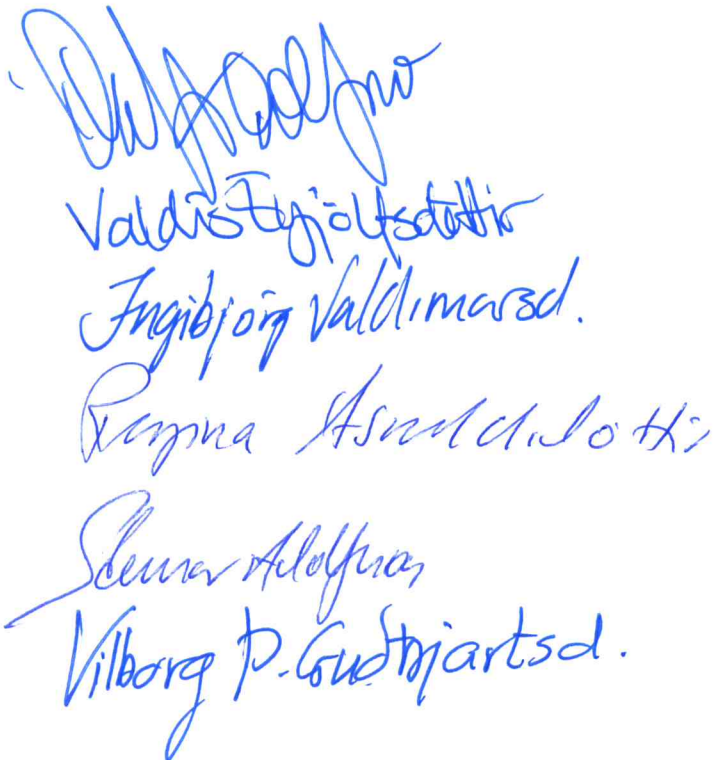 Valdís Eyjólfsdóttir
Ingibjörg Valdimarsd.
Regína Ásvaldsdóttir
Steinar Adolfsson
Vilborg Þ. Guðbjartsd.